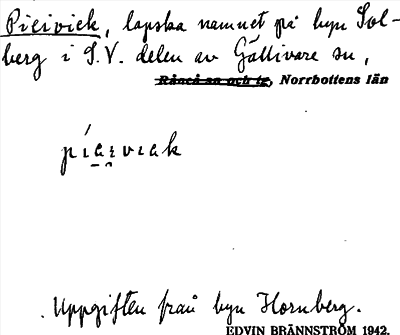 Picivick, lapska namnet på byn Sol-
berg i S.V. delen av Gällivare sn,
Råneå sn och tg, Norrbottens län
Uppgiften från byn Hornberg.
EDVIN BRÄNNSTRÖM 1942.